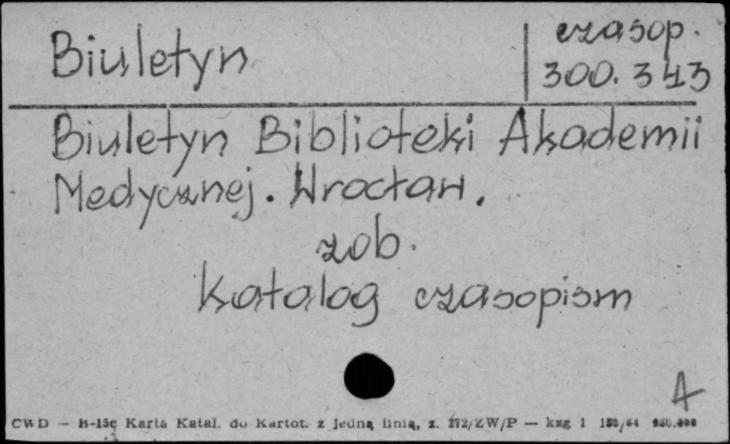 Biuletyn
czasop.
300.343
Biuletyn Biblioteki Akademii
Medycznej. Wrocław.
zob.
Katalog czasopism
A
CWD — B-15c Karta Katal. do Kartot. z jedną linią, z. 272/ZW/P — kzg 1